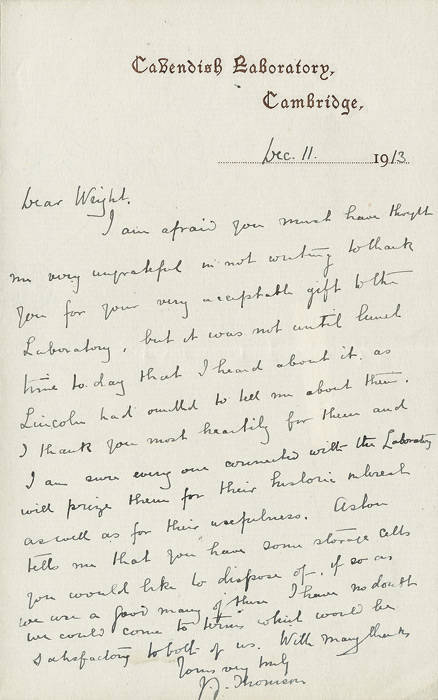 Cavendish Laboratory,
Cambridge,
Dec. 11. 1913
Dear Wright.
I am afraid you must have thought
me very ungrateful in not writing to thank
you for your very acceptable gift to the
Laboratory, but it was not until lunch
time to-day that I heard about it, as
Lincoln had omitted to tell me about them.
I thank you most heartily for them and
I am sure every one connected with the Laboratory
will prize them for their historic interest
as well as for their usefulness. Aston
tells me that you have some storage cells
you would like to dispose of, if so as
we use a good many of them I have no doubt
we could come to terms which would be
satisfactory to both of us. With many thanks
Yours very truly
J.J. Thomson